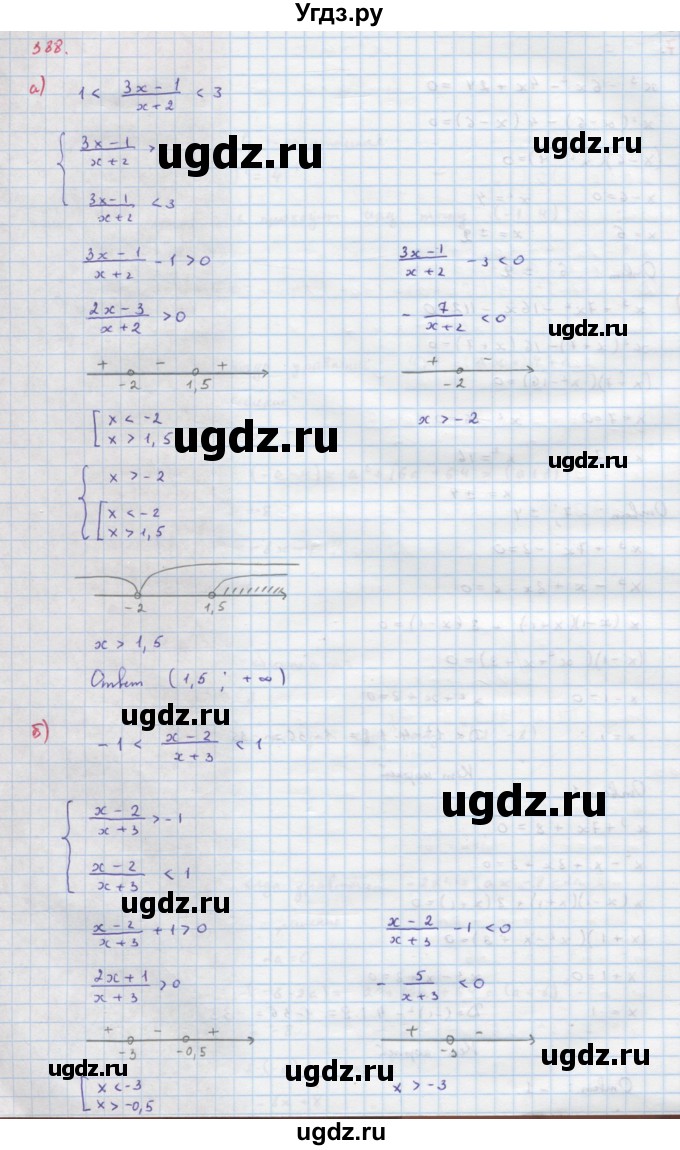 Угдз.ру
388.
а) 1 < (3x − 1)/(x + 2) < 3
{ (3x − 1)/(x + 2) >
ugdz.ru
ugdz.ru
(3x − 1)/(x + 2) < 3
(3x − 1)/(x + 2) − 1 > 0
(3x − 1)/(x + 2) − 3 < 0
(2x − 3)/(x + 2) > 0
− 7/(x + 2) < 0
ugdz.ru
+ − +
−2 1,5
+ −
−2
[ x < −2
x > 1,5
x > −2
ugdz.ru
ugdz.ru
{ x > −2
[ x < −2
x > 1,5
−2 1,5
x > 1,5
Ответ (1,5 ; +∞)
ugdz.ru
б) −1 < (x − 2)/(x + 3) < 1
ugdz.ru
{ (x − 2)/(x + 3) > −1
(x − 2)/(x + 3) < 1
ugdz.ru
(x − 2)/(x + 3) + 1 > 0
(x − 2)/(x + 3) − 1 < 0
(2x + 1)/(x + 3) > 0
− 5/(x + 3) < 0
+ − +
−3 −0,5
+ −
−3
ugdz.ru
ugdz.ru
ugdz.ru
[ x < −3
x > −0,5
x > −3
ugdz.ru